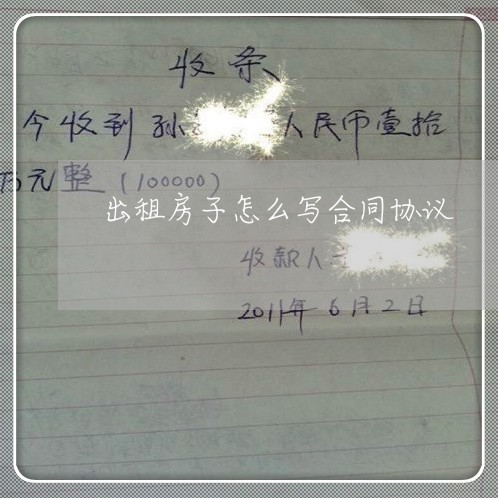 收条
今收到孙 人民币壹拾
万元整（100000）
出租房子怎么写合同协议
收款人
2011年6月2日